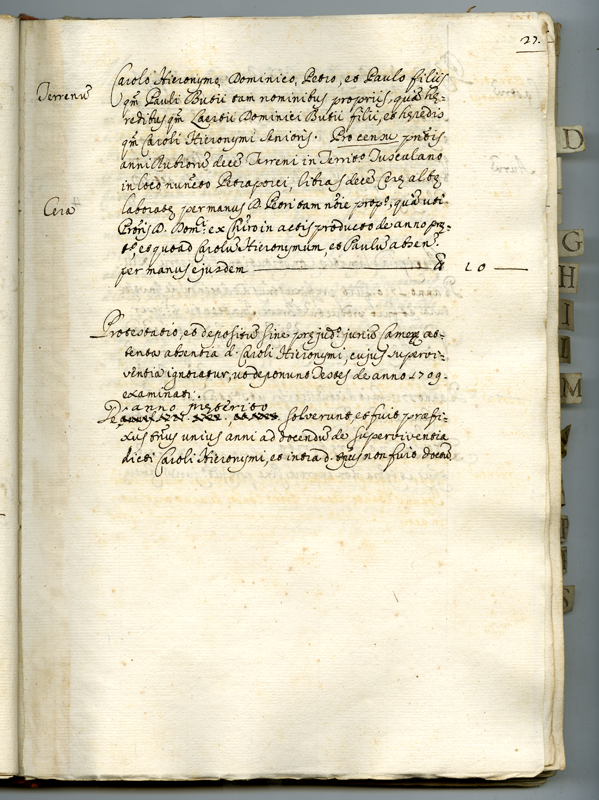 27.
Carolo Hieronymo, Dominico, Petro, et Paulo filiis
Terrenũ
qm̃ Pauli Butii tam nominibus propriis, quã hę-
redibus qm̃ Laertii Dominici Butii filii, et hęredis
qm̃ Caroli Hieronymi senioris. Pro censu pntis
anni Rubiorũ decẽ Terreni in Territo Tusculano
in loco nuncto Petraporci, libras decẽ Cerę albę
Cera
laboratę per manus D. Petri tam noĩe propo, quã uti
Prõris D. Domci ex Chiro in actis producto de anno
et quoad Carolũ Hieronymum, et Paulũ absen
per manus ejusdem — ℔ 10 —
Protestatio, et depositũ sine pręjudo juriũ Camerę at-
tenta absentia d. Caroli Hieronymi, cujus supervi-
ventia ignoratur, ut deponunt Testes de anno 1709.
examinati.
anno pręterito
De solverunt, et fuit pręfi-
xus tñus unius anni ad docendũ de supervivventia
dicti Caroli Hieronymi, et intra d. tñus non fuit doctũ